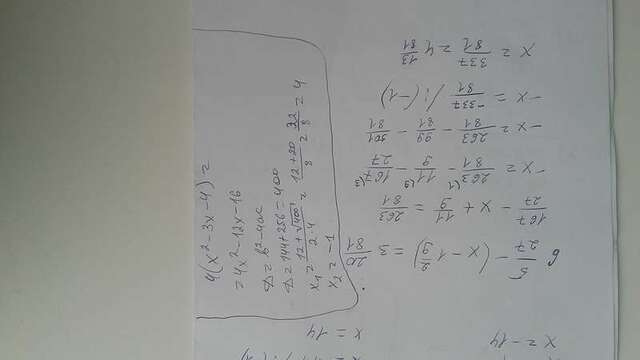 4(x²-3x-4)=
=4x²-12x-16
D=b²-4ac
D=144+256=400
x₁=(12+√400)/(2·4)=(12+20)/8=32/8=4
x₂=-1
x=14
x=-14
6 5/27-(x-1 2/9)=3 20/81
167/27-x+11/9=263/81
-x=263/81⁽¹-11/9⁽⁹-167/27⁽³
-x=263/81-99/81-501/81
-x=-337/81 /:(-1)
x=337/81=4 13/81